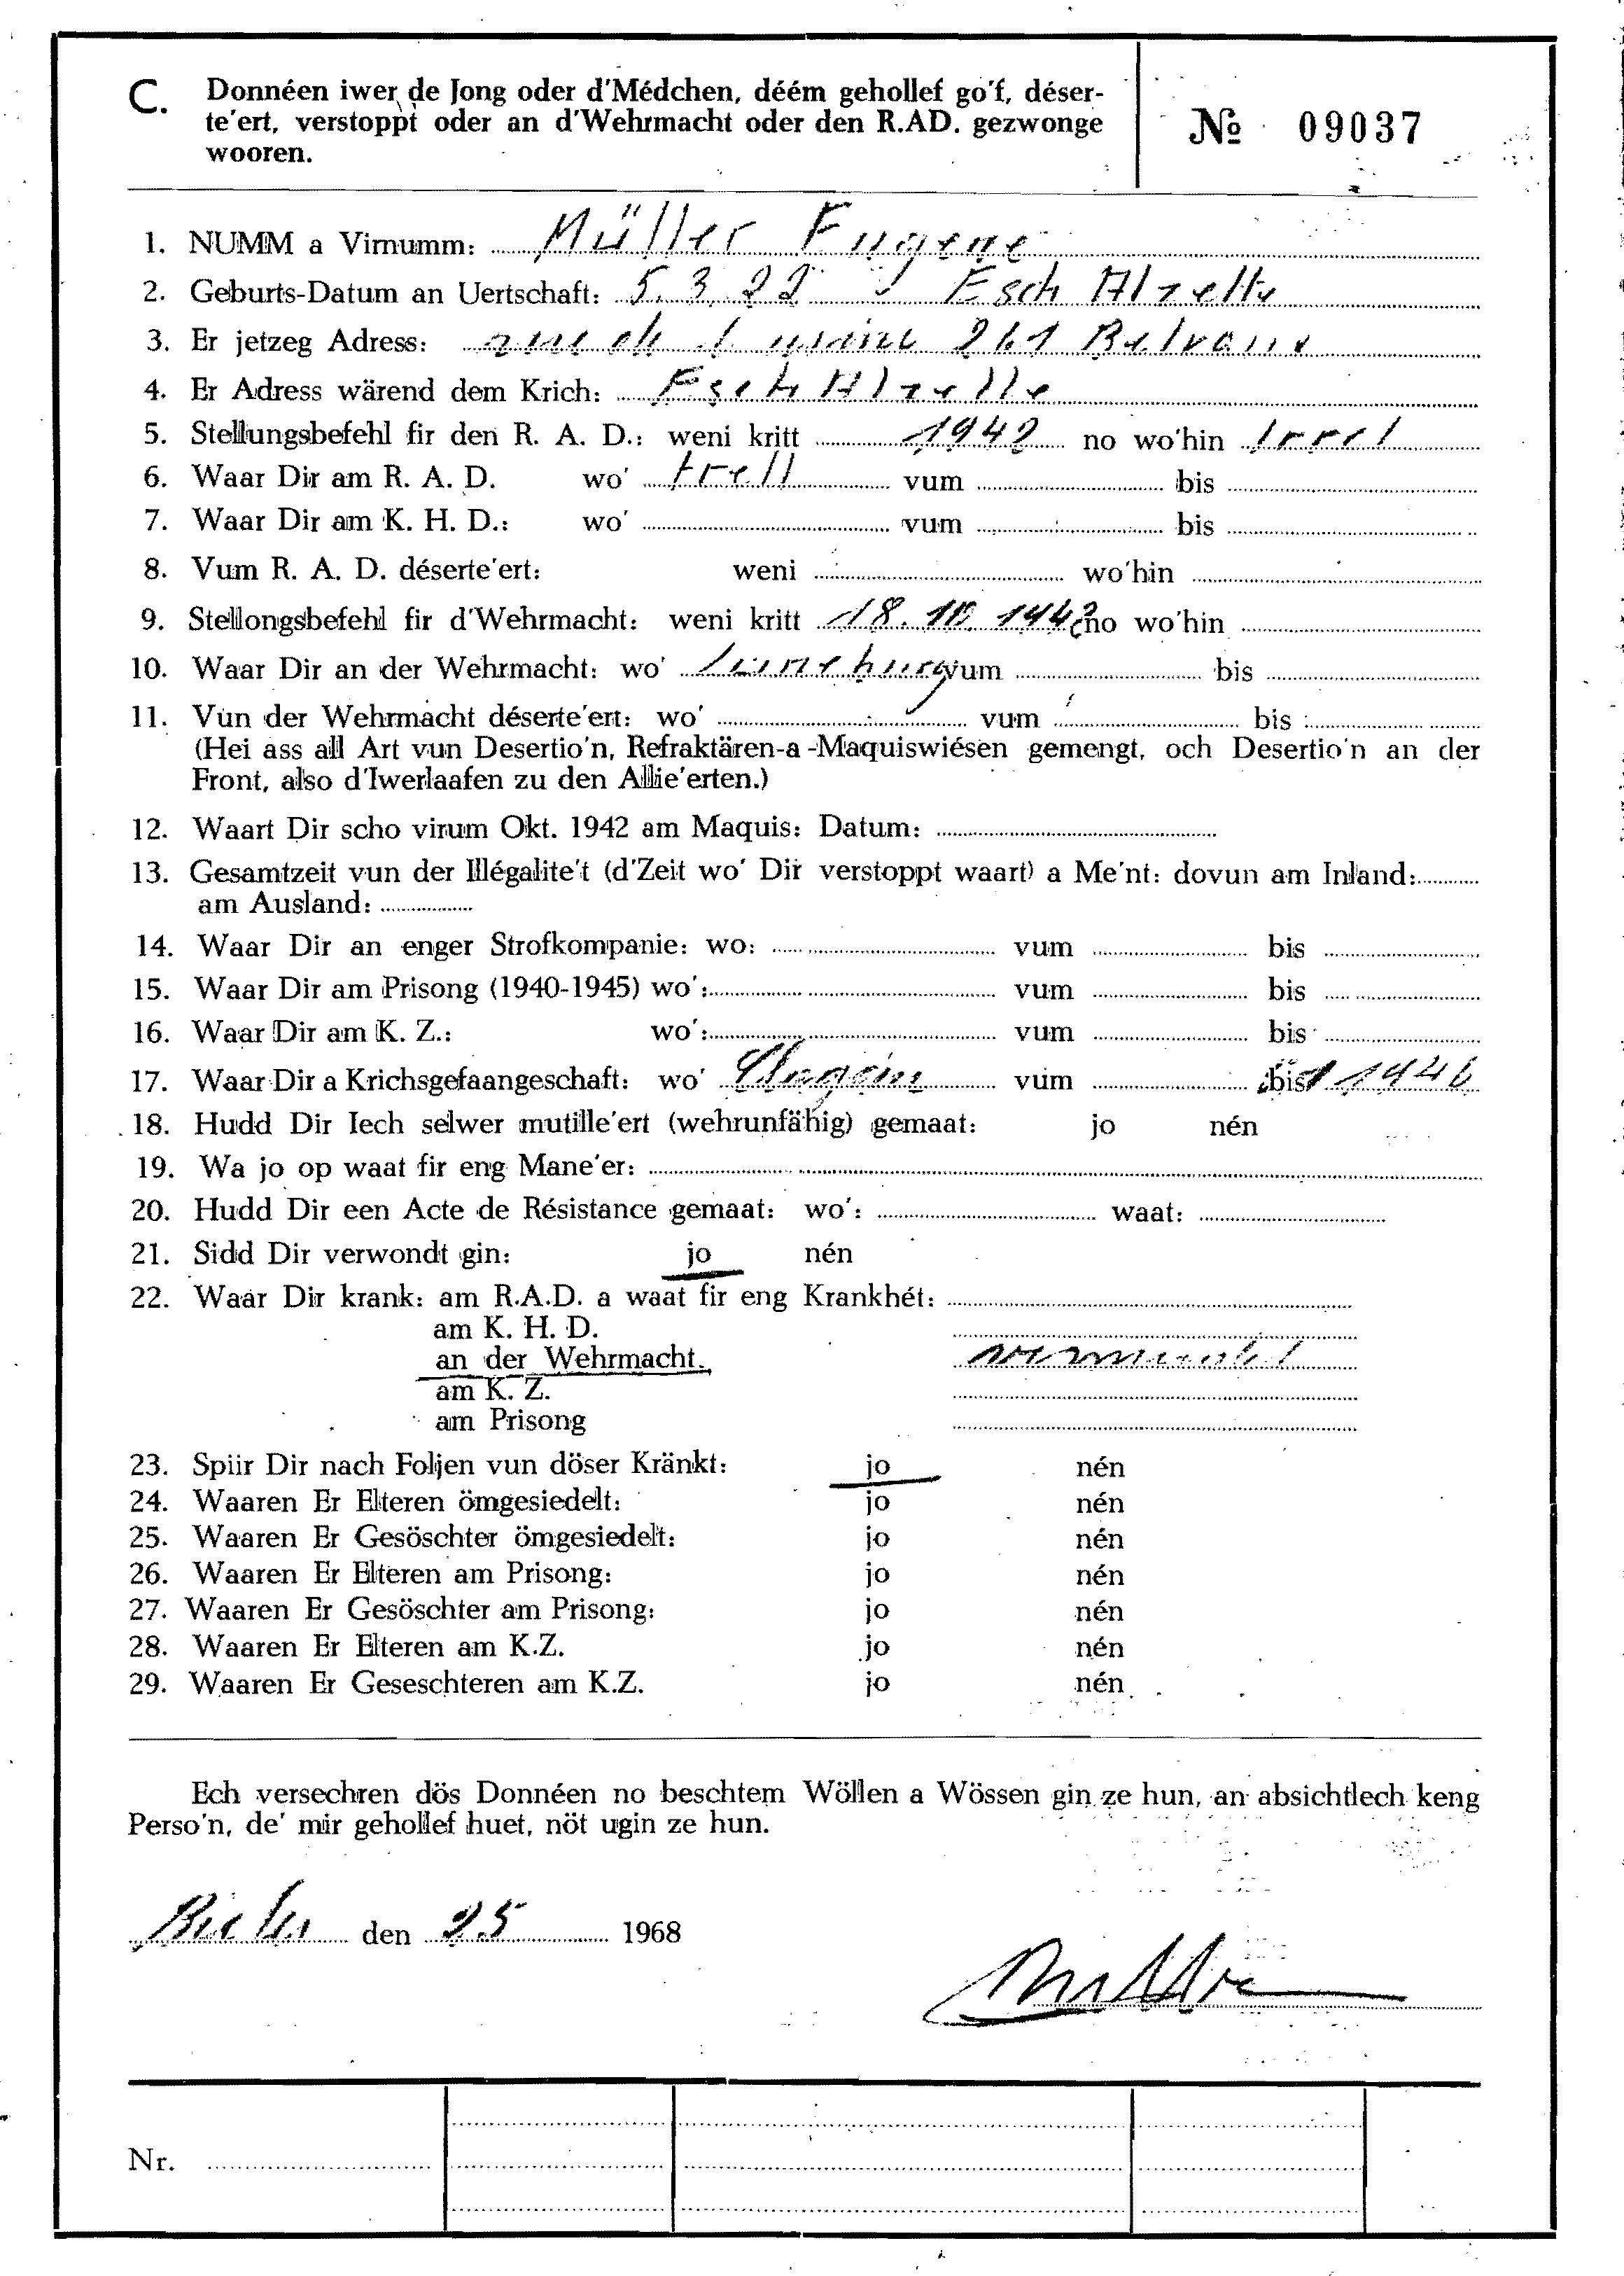 C. Donnéen iwer de Jong oder d'Médchen, déém gehollef go'f, déser-
te'ert, verstoppt oder an d'Wehrmacht oder den R.AD. gezwonge
wooren.
№ 09037
1. NUMM a Virnumm: Müller Eugene
2. Geburts-Datum an Uertschaft: 5.3.22 Esch Alzette
3. Er jetzeg Adress: rue de l'usine 261 Belvaux
4. Er Adress wärend dem Krich: Esch Alzette
5. Stellungsbefehl fir den R. A. D.: weni kritt 1942 no wo'hin Irrel
6. Waar Dir am R. A. D. wo' Irell vum bis
7. Waar Dir am K. H. D.: wo' vum bis
8. Vum R. A. D. déserte'ert: weni wo'hin
9. Stellongsbefehl fir d'Wehrmacht: weni kritt 18.10.1942 no wo'hin
10. Waar Dir an der Wehrmacht: wo' Luneburg vum bis
11. Vun der Wehrmacht déserte'ert: wo' vum bis
(Hei ass all Art vun Desertio'n, Refraktären-a-Maquiswiésen gemengt, och Desertio'n an der
Front, also d'Iwerlaafen zu den Allie'erten.)
12. Waart Dir scho virum Okt. 1942 am Maquis: Datum:
13. Gesamtzeit vun der Illégalite't (d'Zeit wo' Dir verstoppt waart) a Me'nt: dovun am Inland:
am Ausland:
14. Waar Dir an enger Strofkompanie: wo: vum bis
15. Waar Dir am Prisong (1940-1945) wo': vum bis
16. Waar Dir am K. Z.: wo': vum bis
17. Waar Dir a Krichsgefaangeschaft: wo' vum bis 1946
18. Hudd Dir Iech selwer mutille'ert (wehrunfähig) gemaat: jo nén
19. Wa jo op waat fir eng Mane'er:
20. Hudd Dir een Acte de Résistance gemaat: wo': waat:
21. Sidd Dir verwondt gin: jo nén
22. Waar Dir krank: am R.A.D. a waat fir eng Krankhét:
am K. H. D.
an der Wehrmacht. verwundet
am K. Z.
am Prisong
23. Spiir Dir nach Foljen vun döser Kränkt: jo nén
24. Waaren Er Elteren ömgesiedelt: jo nén
25. Waaren Er Gesöschter ömgesiedelt: jo nén
26. Waaren Er Elteren am Prisong: jo nén
27. Waaren Er Gesöschter am Prisong: jo nén
28. Waaren Er Elteren am K.Z. jo nén
29. Waaren Er Geseschteren am K.Z. jo nén
Ech versechren dös Donnéen no beschtem Wöllen a Wössen gin ze hun, an absichtlech keng
Perso'n, de' mir gehollef huet, nöt ugin ze hun.
den 25 1968
Nr.